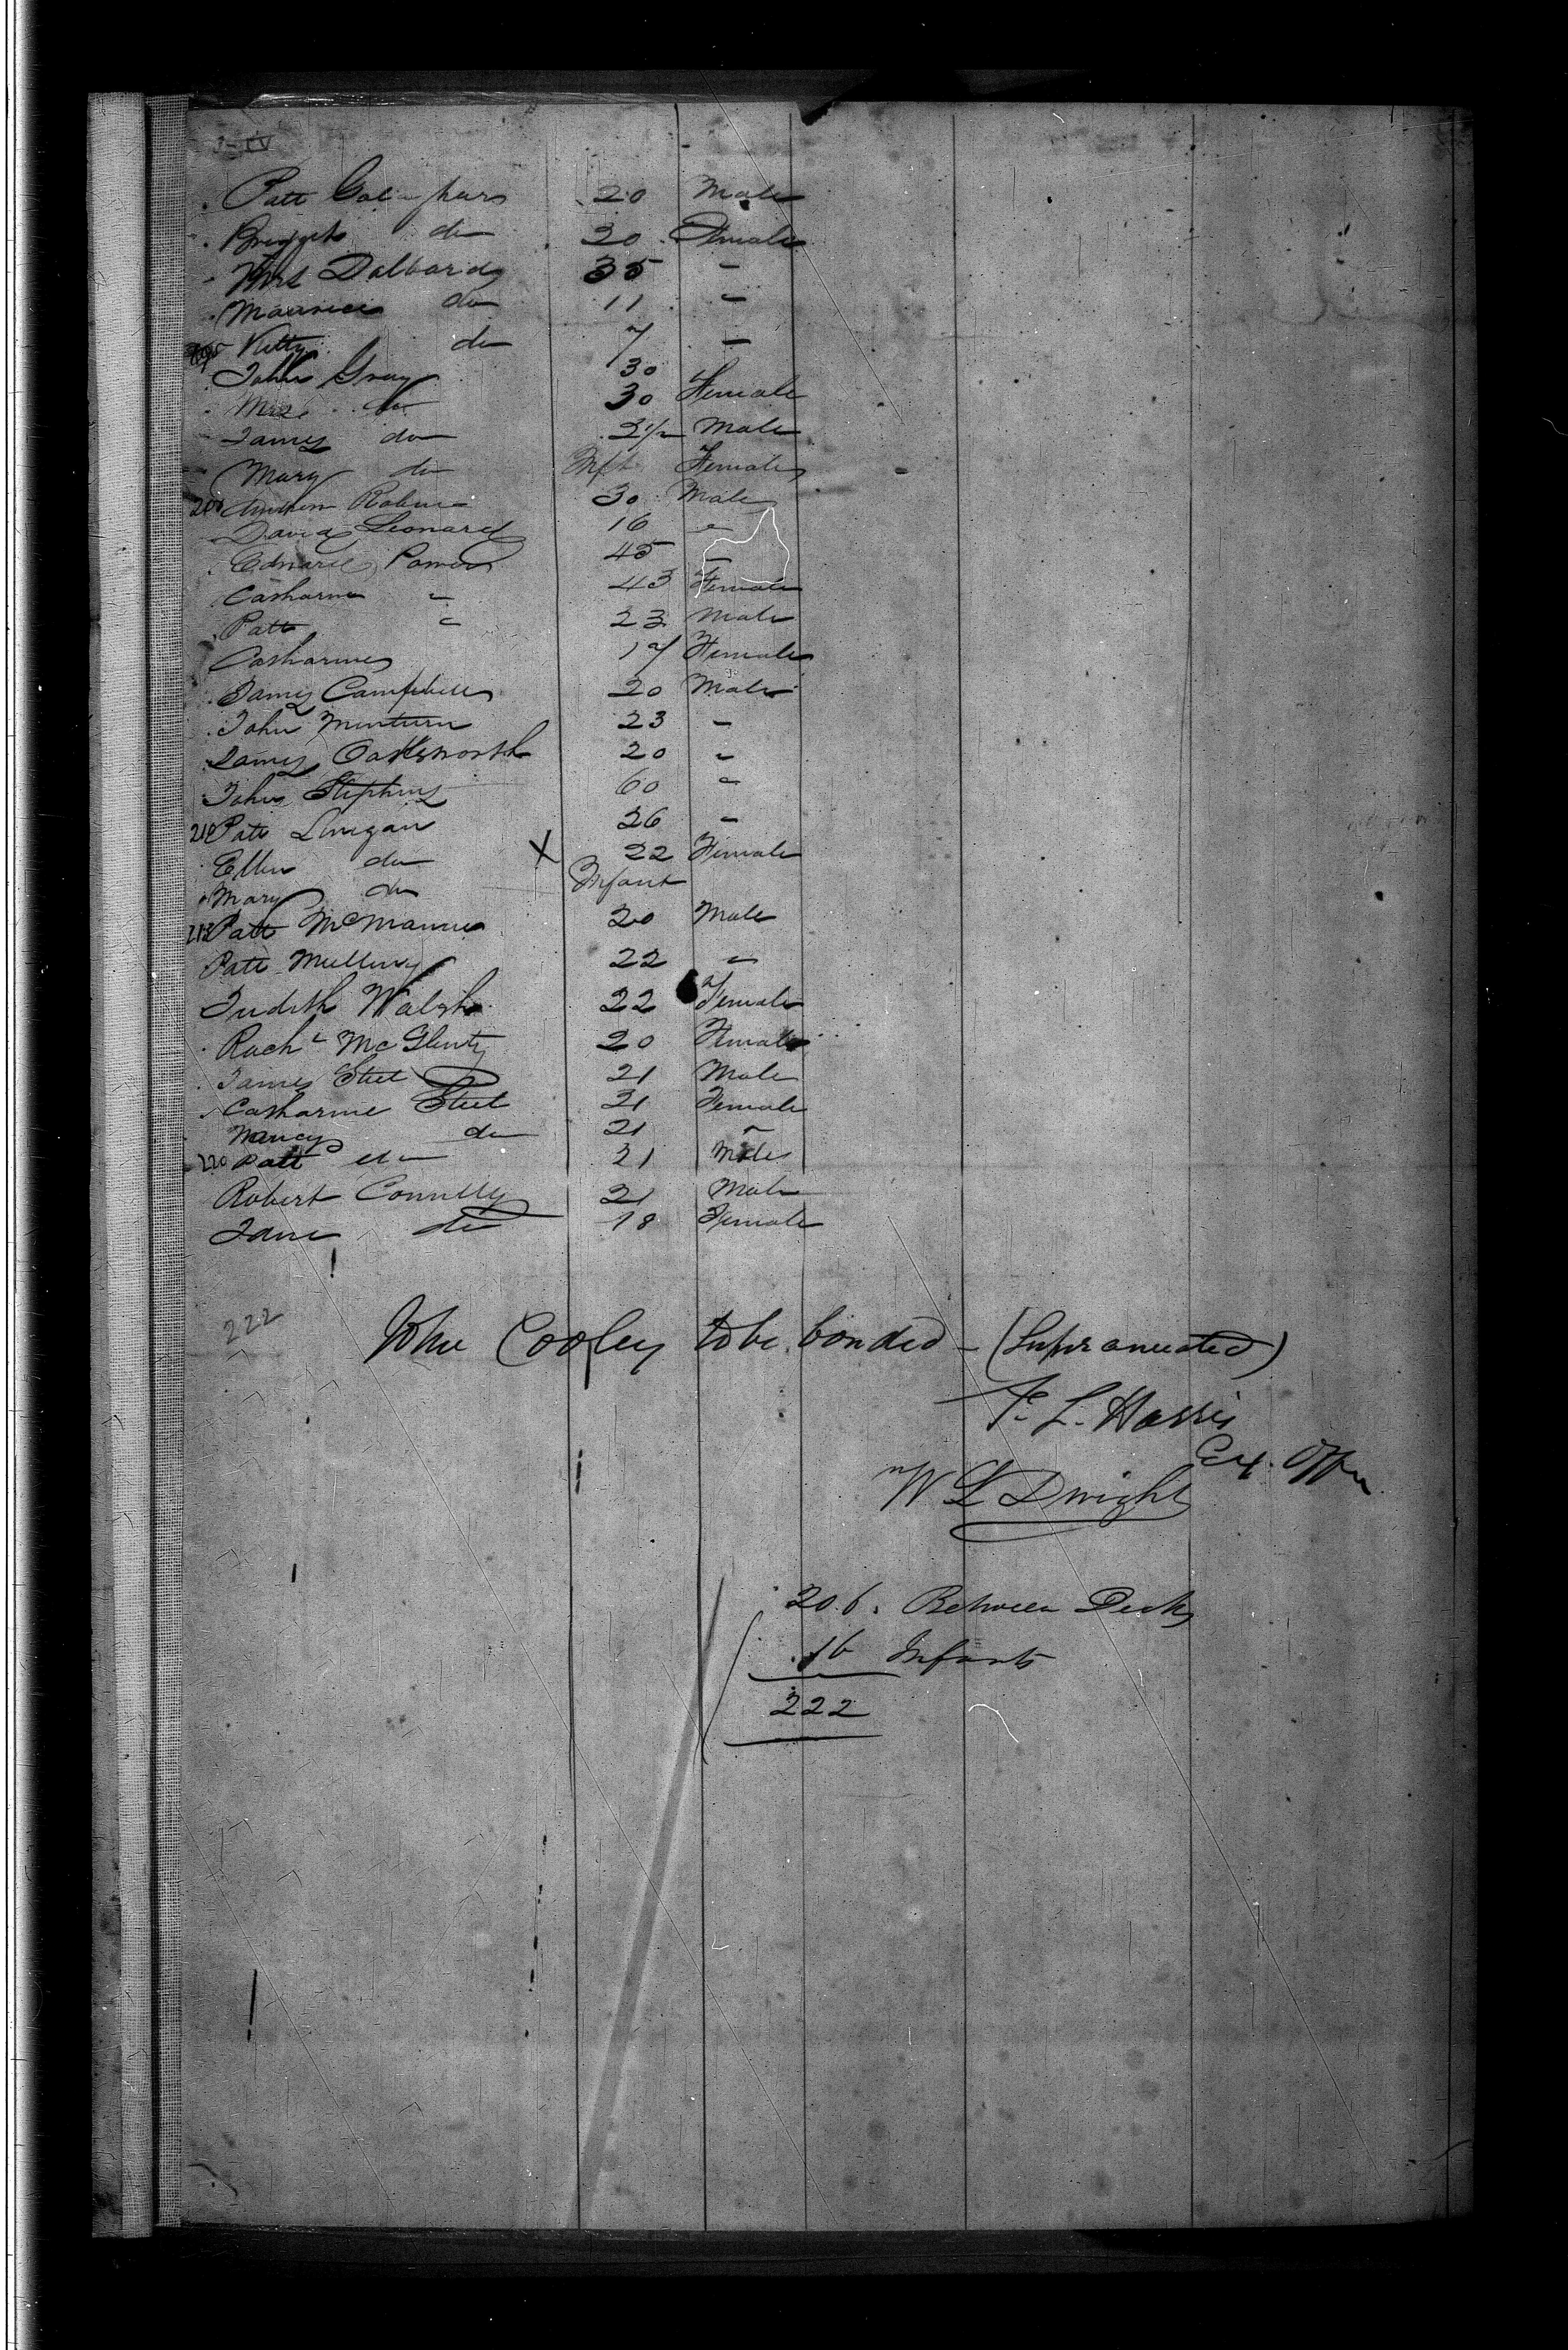 Patt 20 Male
Bridget do 20 Female
Mrs Dalbard 35 "
Maurice do 11 "
Kitty do 7 "
John Gray 30
Mrs. do 30 Female
James do 2 1/2 Male
Mary do Inft Female
200 30 Male
David Leonard 16 "
Edward Power 45 "
Catharine " 43 Female
Patt " 23 Male
Catharine 17 Female
James Campbell 20 Male
John Minturn 23 "
James Oatesworth 20 "
John Stephens 60 "
210 Patt Linigan 26 "
Ellen do X 22 Female
Mary do Infant
213 Patt McManus 20 Male
Patt Mulleny 22 "
Judith Walsh 22 Female
Rachl McGlinty 20 Female
James Steel 21 Male
Catharine Steel 21 Female
Nancy do 21 "
220 Patt do 21 Male
Robert Connelly 21 Male
Jane do 18 Female
222
John Cooley to be bonded - (Superannuated)
F. L. Harris
Ex. Offr
W L Dwight
206. Between Decks
16 Infants
222